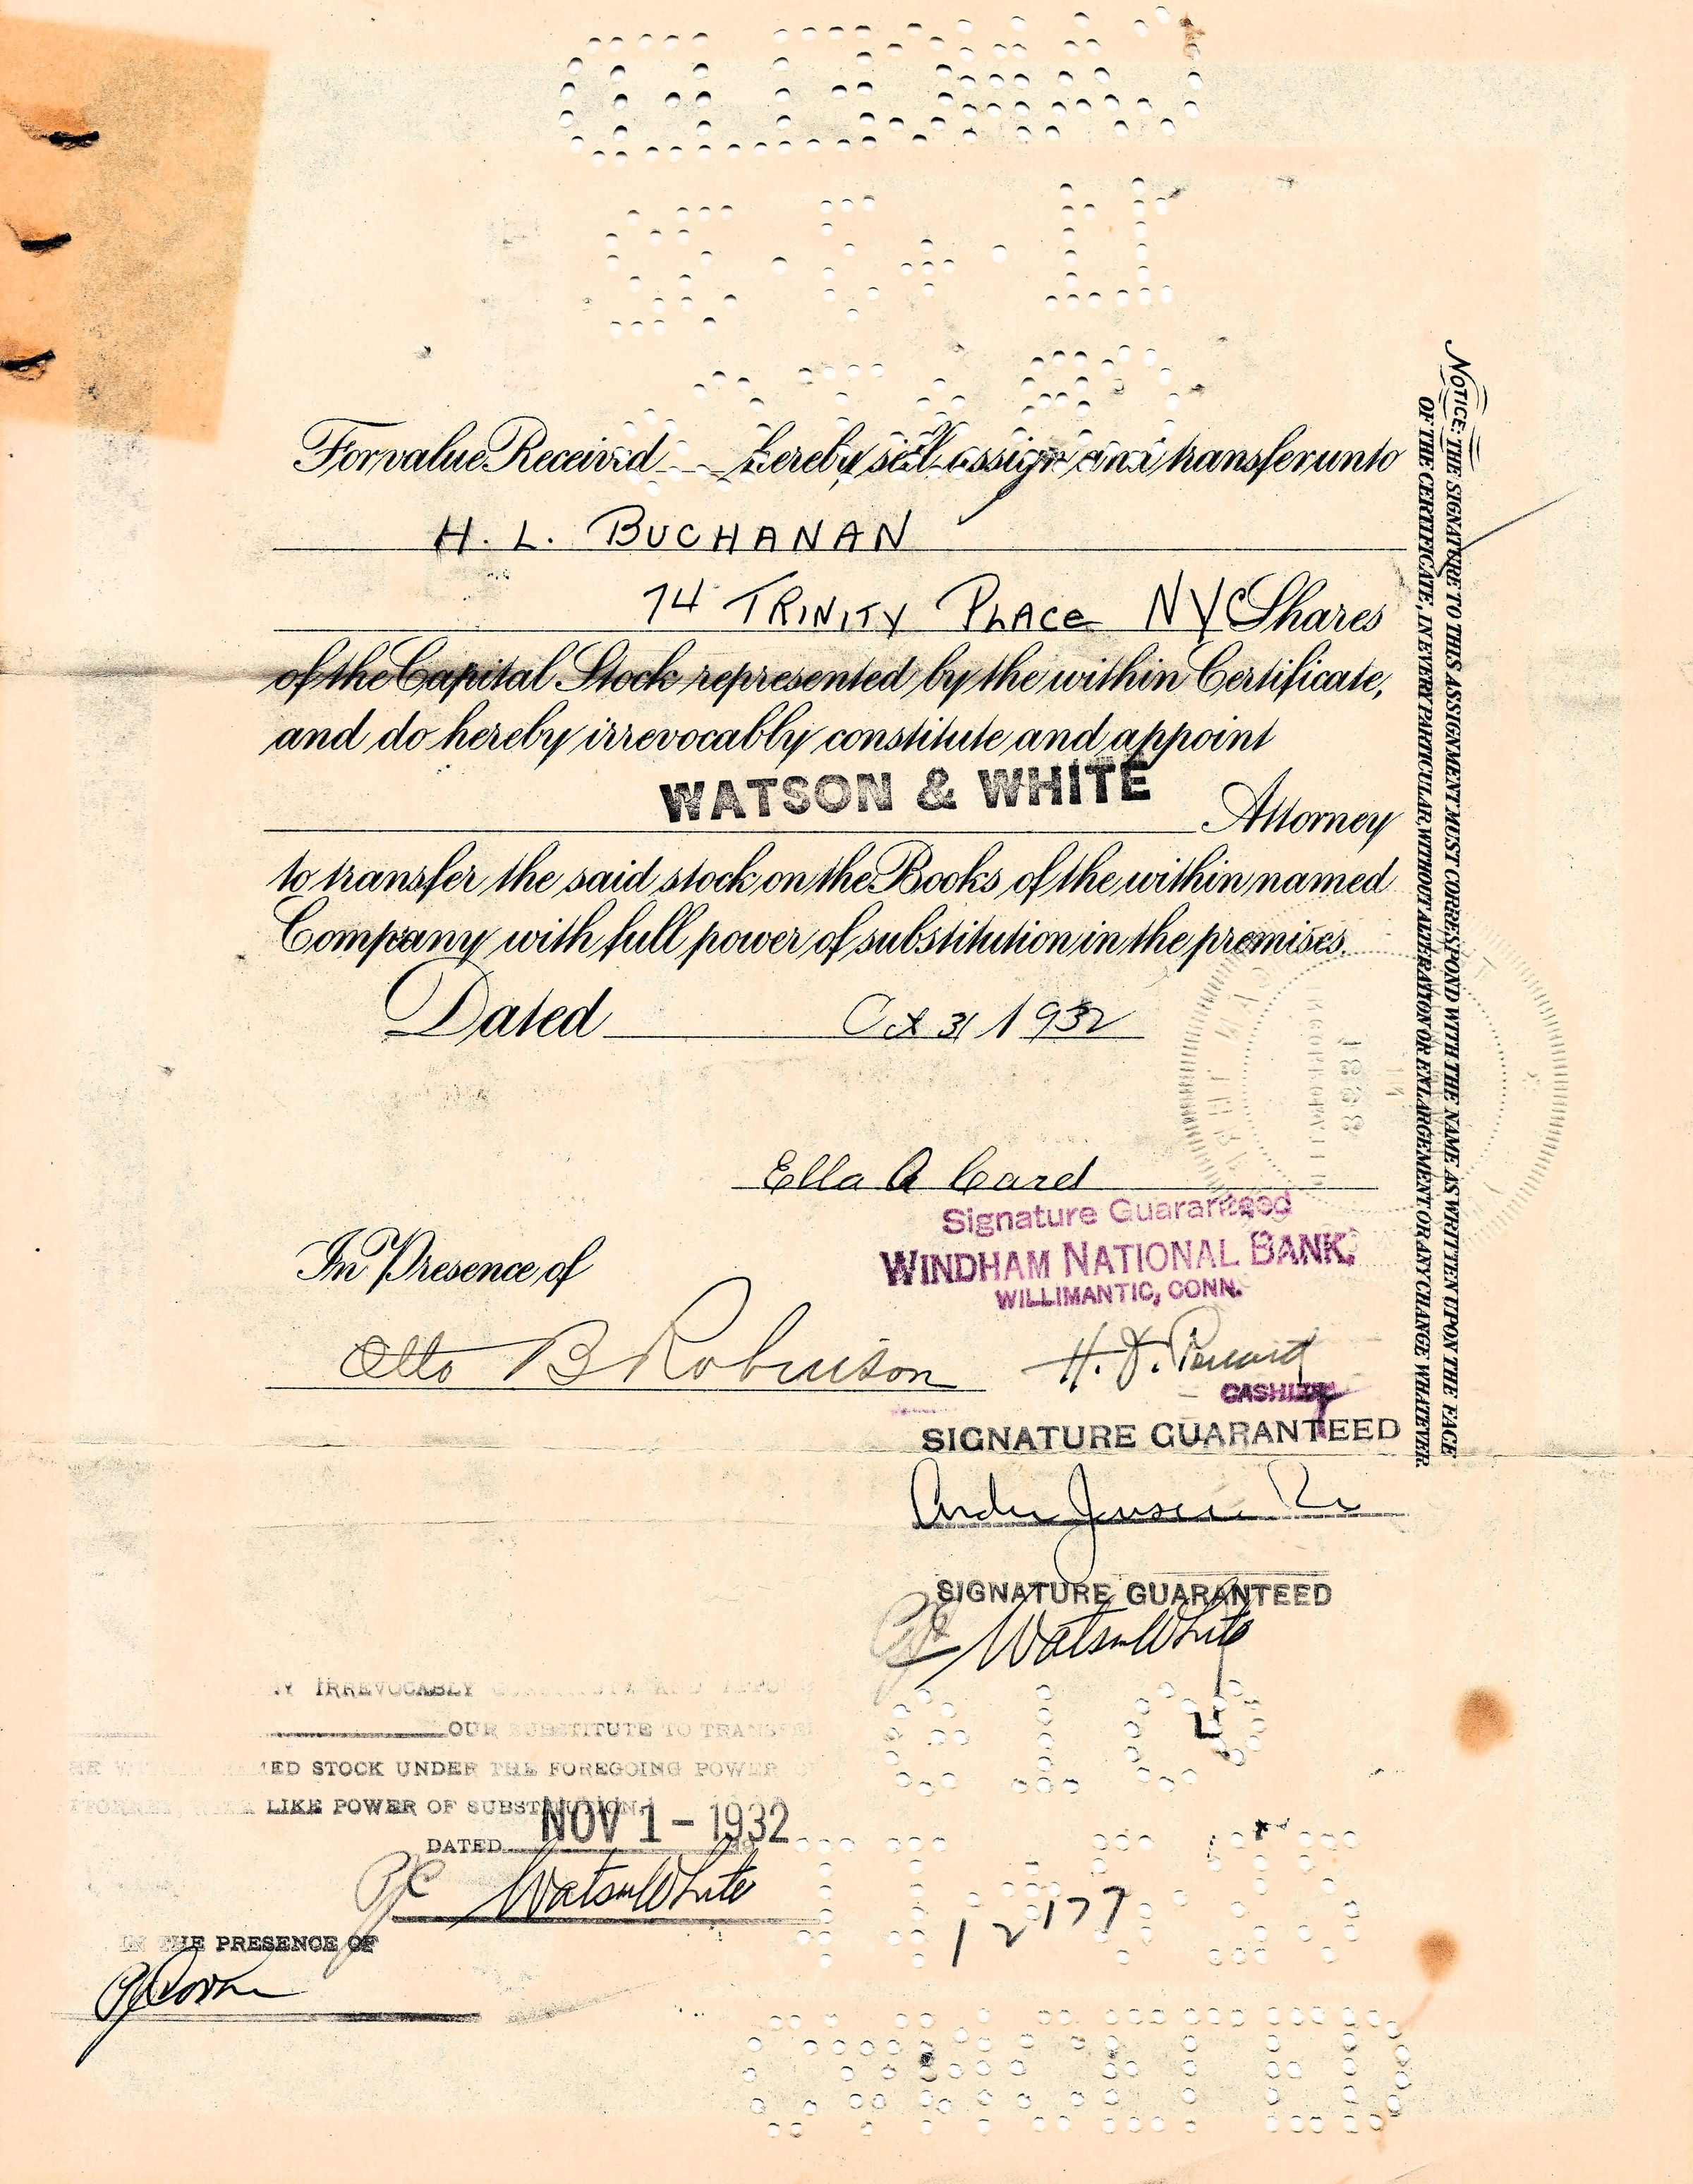 For value Received hereby sell, assign and transfer unto
H. L. BUCHANAN
74 TRINITY PLACE NYC Shares
of the Capital Stock represented by the within Certificate,
and do hereby irrevocably constitute and appoint
WATSON & WHITE
Attorney
to transfer the said stock on the Books of the within named
Company with full power of substitution in the premises.
Dated Oct 31 1932
Ella A Card
Signature Guaranteed
WINDHAM NATIONAL BANK,
WILLIMANTIC, CONN.
In Presence of
Otto B Robinson
H. J.
CASHIER
SIGNATURE GUARANTEED
SIGNATURE GUARANTEED
Watson White
Y IRREVOCABLY
OUR SUBSTITUTE TO TRANSFE
ED STOCK UNDER THE FOREGOING POWER
LIKE POWER OF SUBSTITUTION.
DATED NOV 1 - 1932
Watson White
IN THE PRESENCE OF
12177
CANCELLED
NOTICE: THE SIGNATURE TO THIS ASSIGNMENT MUST CORRESPOND WITH THE NAME AS WRITTEN UPON THE FACE
OF THE CERTIFICATE, IN EVERY PARTICULAR, WITHOUT ALTERATION OR ENLARGEMENT OR ANY CHANGE WHATEVER.